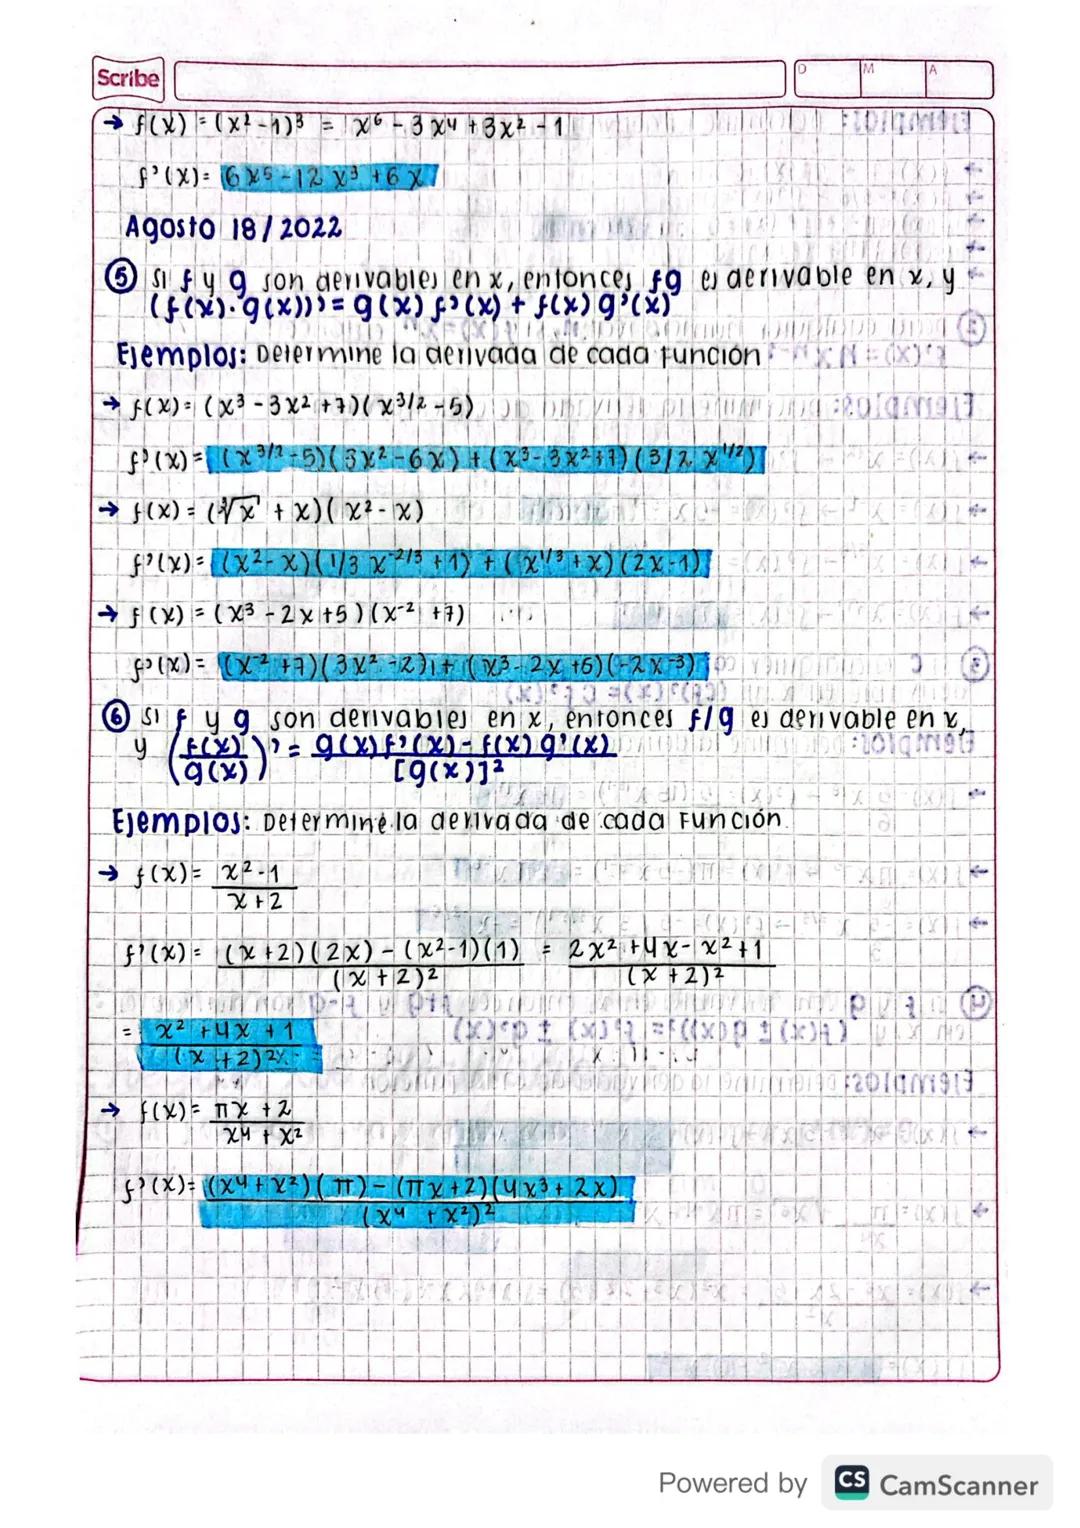 Scribe
D M A
→ f(x) = (x² - 1)³ = x⁶ - 3x⁴ + 3x² - 1
f'(x) = 6x⁵ - 12x³ + 6x
Agosto 18/2022
⑤ Si f y g son derivables en x, entonces fg es derivable en x, y
(f(x)·g(x))' = g(x) f'(x) + f(x) g'(x)
Ejemplos: Determine la derivada de cada función
→ f(x) = (x³ - 3x² + 7)(x^3/2 - 5)
f'(x) = (x^3/2 - 5)(3x² - 6x) + (x³ - 3x² + 7)(3/2 x^1/2)
→ f(x) = (∛x + x)(x² - x)
f'(x) = (x² - x)(1/3 x^-2/3 + 1) + (x^1/3 + x)(2x - 1)
→ f(x) = (x³ - 2x + 5)(x⁻² + 7)
f'(x) = (x⁻² + 7)(3x² - 2) + (x³ - 2x + 5)(-2x⁻³)
⑥ Si f y g son derivables en x, entonces f/g es derivable en x,
y (f(x)/g(x))' = g(x) f'(x) - f(x) g'(x) / [g(x)]²
Ejemplos: Determine la derivada de cada función.
→ f(x) = x² - 1 / x + 2
f'(x) = (x + 2)(2x) - (x² - 1)(1) / (x + 2)² = 2x² + 4x - x² + 1 / (x + 2)²
= x² + 4x + 1 / (x + 2)²
→ f(x) = πx + 2 / x⁴ + x²
f'(x) = (x⁴ + x²)(π) - (πx + 2)(4x³ + 2x) / (x⁴ + x²)²
Powered by CS CamScanner